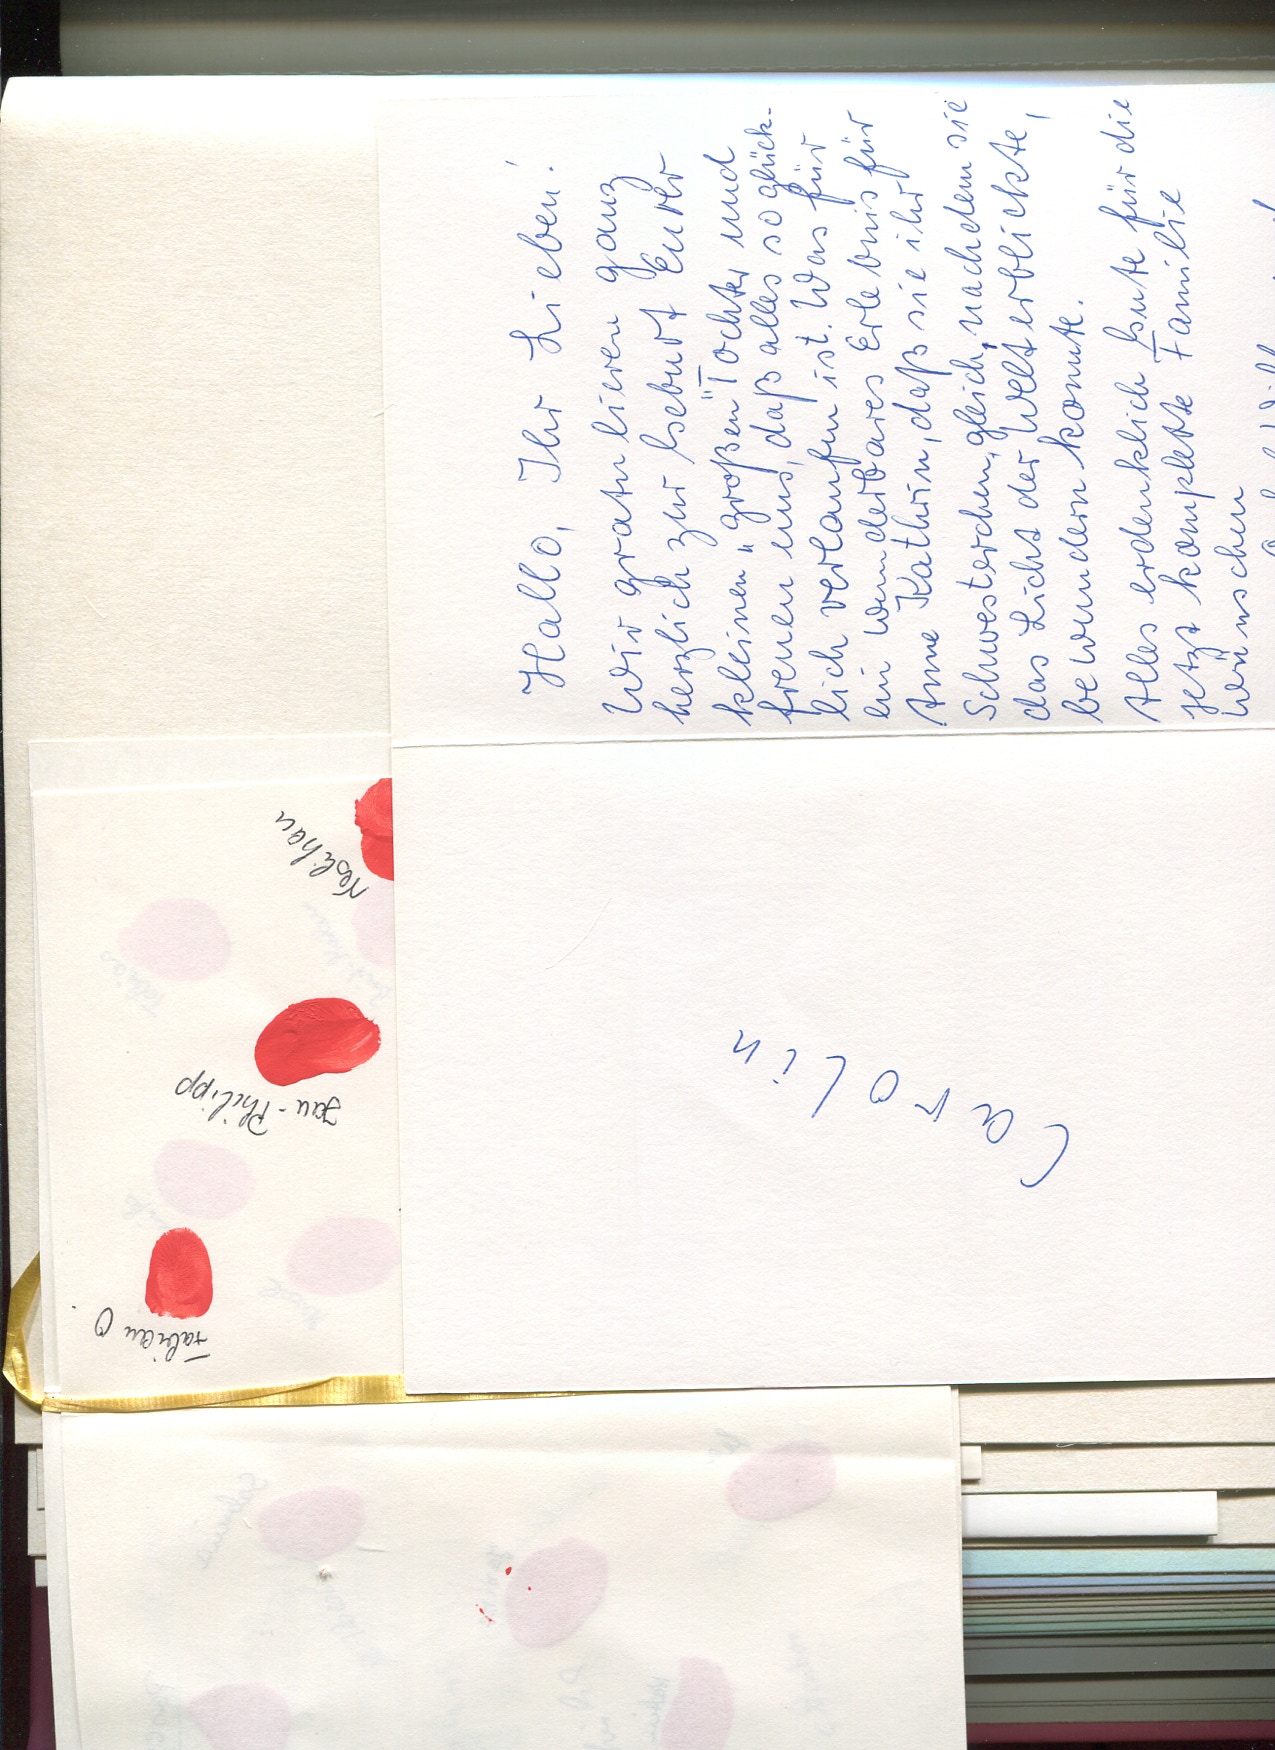 Hallo, Ihr Lieben!
Wir gratulieren ganz
herzlich zur Geburt Eurer
kleinen „großen" Tochter und
freuen uns, daß alles so glück-
lich verlaufen ist. Was für
ein wunderbares Erlebnis für
Anne Kathrin, daß sie ihr
Schwesterchen, gleich, nachdem sie
das Licht der Welt erblickte,
bewundern konnte.
Alles erdenklich Gute für die
jetzt komplette Familie
wünschen
Carolin
Neslihan
Jan-Philipp
Fabian O.